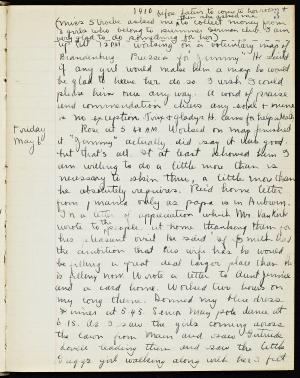 1910 before
(Miss Strocke asked me to collect money from
3 girls who belong to summer Sermon club. I am
very glad to do something for her.)
up till 12 M. working on a voluntary map of
Brandenburg Prussia for "Jimmy". He said
if any girl would make him a map he would
be glad to have her do so. I wish I could
please him one any way. A word of praise
and commendation cheers any soul & mine
is no exception. Trix & Gladys H. came for help also
Friday Rose at 5 A.M. Worked on map finished
May 6 it "Jimmy" actually did say it was good
but that's all. It at least showed him I
am willing to do a little more than is
necessary to show him, a little more than
he absolutely requires. Rec'd home letter
from mama only as papa is in Auburn.
In a letter of appreciation which Mr. Van Kirk
wrote to the people at home thanking them for
his pleasant visit he said if Smith had
the ambition that his wife has he would
be filling a great deal larger place than he
is filling now. Wrote a letter to Aunt Jennie
and a card home. Worked two hours on
my long theme. Donned my blue dress
Dinner at 5.45. Senior May pole dance at
6.15. As I saw the girls coming across
the lawn from Main and saw Gertrude
leading them and saw the little
Taggs girl walking along with her 3 feet